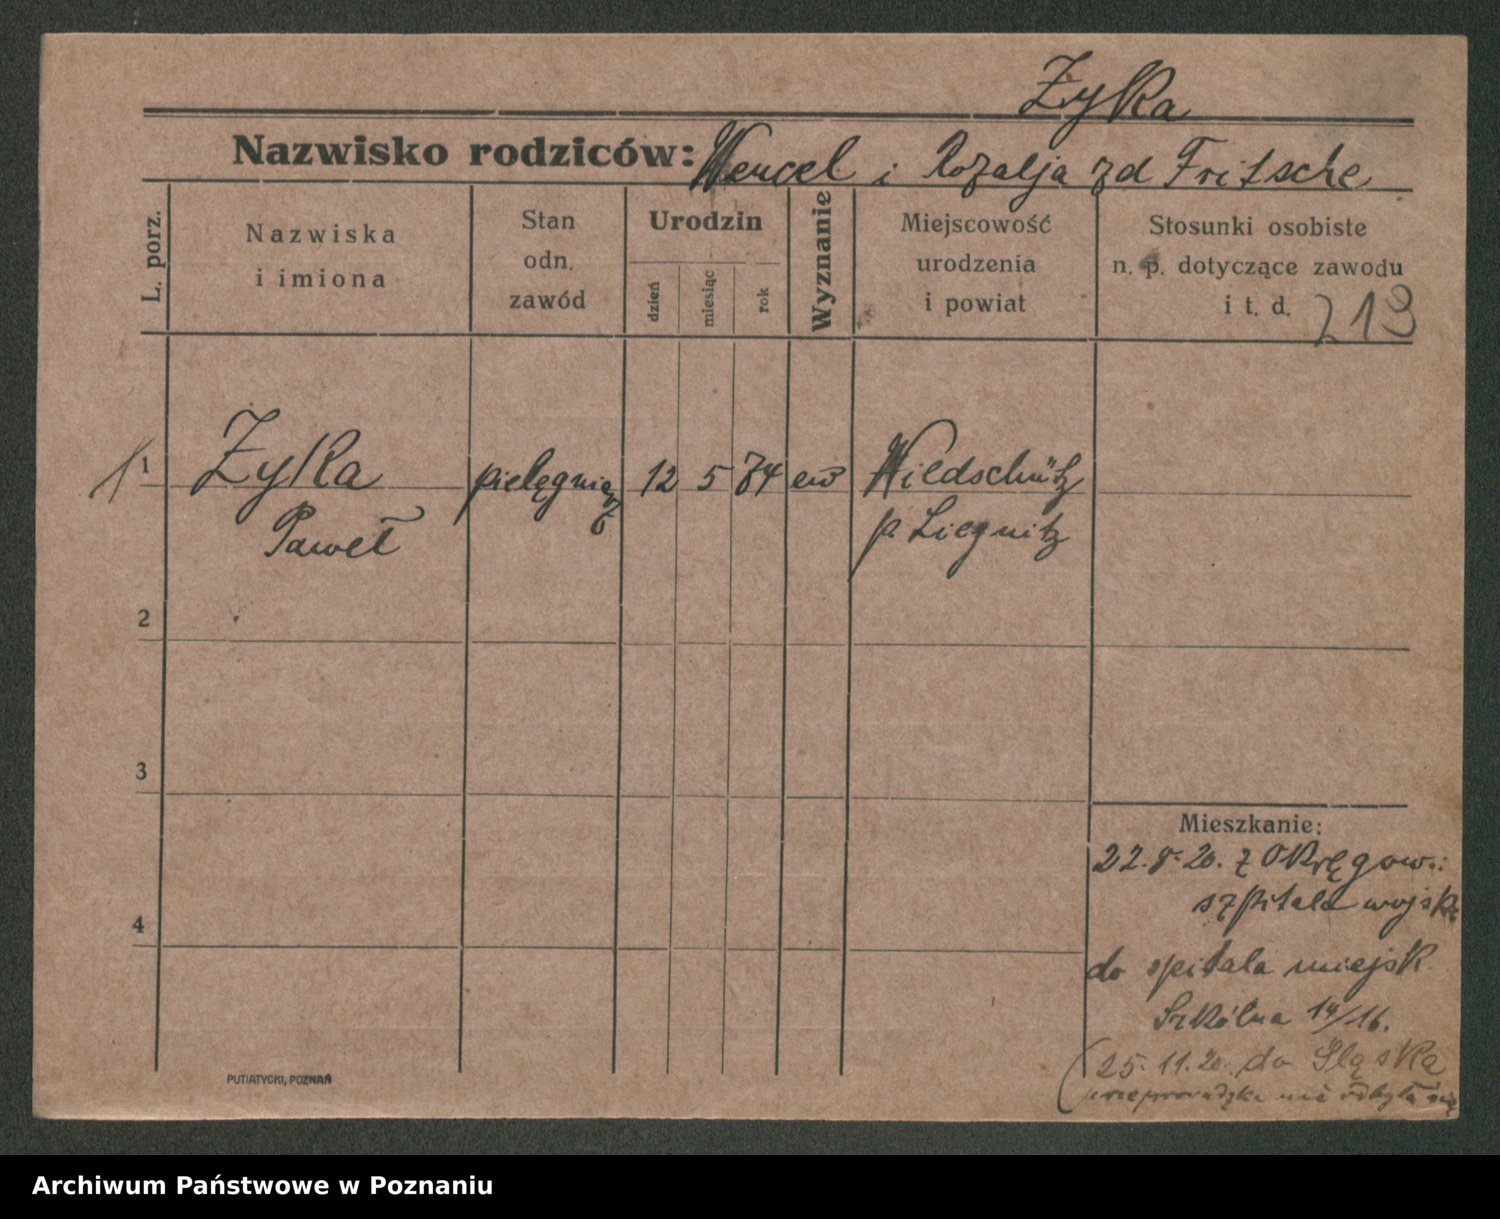 Zyka
Nazwisko rodziców: Wencel i Rozalja zd Fritsche
L. porz.
Nazwiska
i imiona
Stan
odn.
zawód
Urodzin
dzień
miesiąc
rok
Wyznanie
Miejscowość
urodzenia
i powiat
Stosunki osobiste
n. p. dotyczące zawodu
i t. d.
213
1 1 Zyka pielęgniarz 12 5 74 ew Wiedschütz
Paweł p. Liegnitz
2
3
4
Mieszkanie:
22.8.20. z Okręgow.:
szpitala wojsk.
do spitala miejsk.
Szkólna 14/16.
(25.11.20. do Śląska
przeprowadzka nie odbyła się
PUTIATYCKI, POZNAŃ
Archiwum Państwowe w Poznaniu